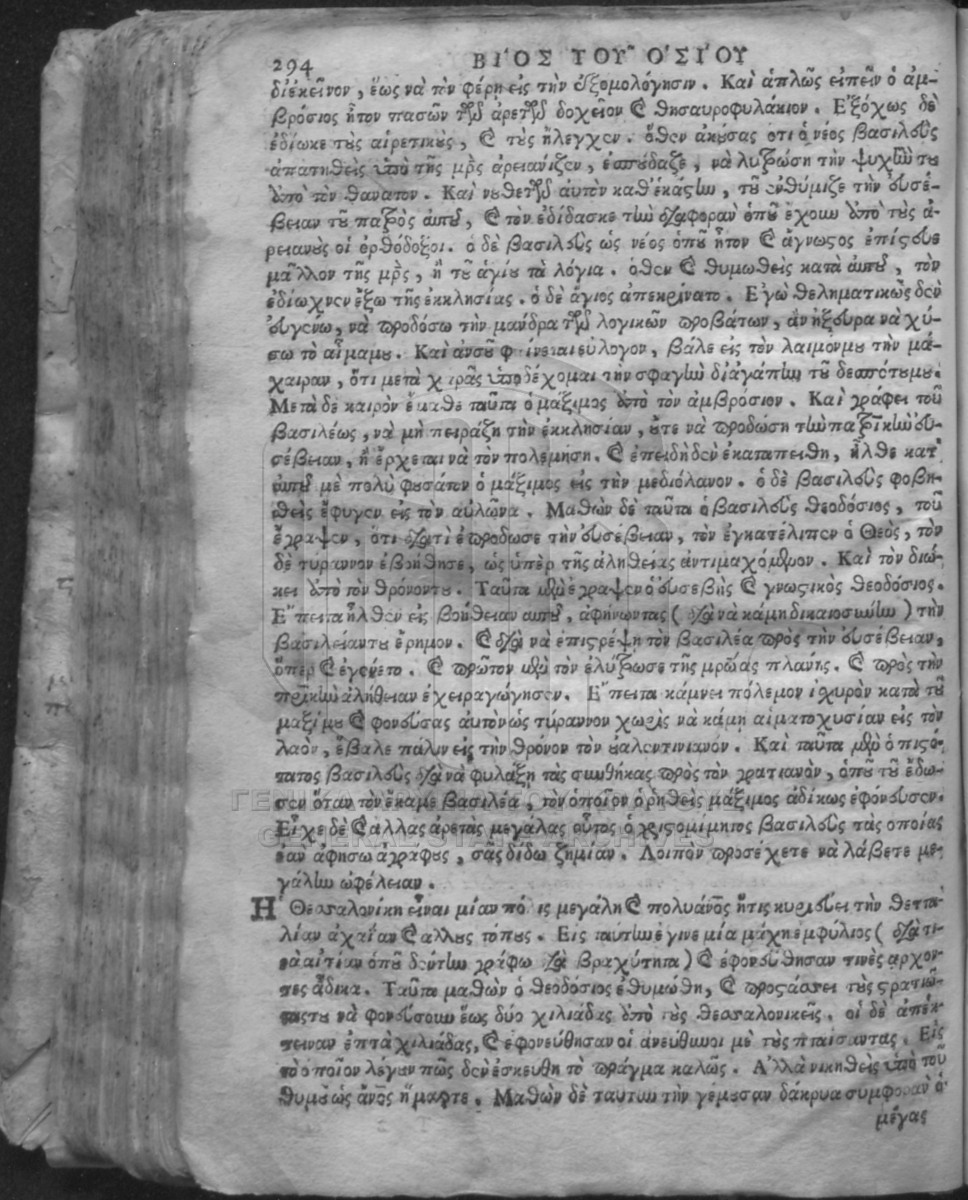 294 ΒΙ´ΟΣ ΤΟΥ῀ Ο῾ΣΙ´ΟΥ
διἐκεῖνον, ἕως νὰ τὸν φέρῃ εἰς τὴν ἐξομολόγησιν. Καὶ ἁπλῶς εἰπεῖν ὁ ἀμ-
βρόσιος ἦτον πασῶν τῶν ἀρετῶν δοχεῖον καὶ θησαυροφυλάκιον. Ἐξόχως δὲ
ἐδίωκε τοὺς αἱρετικοὺς, καὶ τοὺς ἤλεγχεν. ὅθεν ἀκούσας ὅτι ὁ νέος βασιλεὺς
ἀπατηθεὶς ὑπὸ τῆς μρ̅ς ἀρειανίζεν, ἐσπούδαζε, νὰ λυτρώσῃ τὴν ψυχὴν του
ἀπὸ τὸν θάνατον. Καὶ νουθετῶν αὐτὸν καθἑκάστην, τοῦ ἐνθύμιζε τὴν εὐσέ-
βειαν τοῦ πατρὸς αὐτοῦ, καὶ τὸν ἐδίδασκε τὴν διαφορὰν ὁποῦ ἔχουν ἀπὸ τοὺς ἀ-
ρειανοὺς οἱ ὀρθόδοξοι. ὁ δὲ βασιλεὺς ὡς νέος ὁποῦ ἦτον καὶ ἄγνωστος ἐπίστευε
μᾶλλον τῆς μρ̅ς, ἢ τοῦ ἁγίου τὰ λόγια. ὅθεν καὶ θυμωθεὶς κατὰ αὐτοῦ, τὸν
ἐδίωχνεν ἔξω τῆς ἐκκλησίας. ὁ δὲ ἅγιος ἀπεκρίνατο. Ἐγὼ θεληματικῶς δὲν
εὐγένω, νὰ προδόσω τὴν μάνδρα τῶν λογικῶν προβάτων, ἂν ἤξευρα νὰ χύ-
σω τὸ αἷμαμου. Καὶ ἀνσοῦ φαίνεται εὔλογον, βάλε εἰς τὸν λαιμόνμου τὴν μά-
χαιραν, ὅτι μετὰ χαρᾶς ὑποδέχομαι τὴν σφαγὴν διἀγάπην τοῦ δεσπότουμου.
Μετὰ δὲ καιρὸν ἔμαθε ταῦτα ὁ μάξιμος ἀπὸ τὸν ἀμβρόσιον. Καὶ γράφει τοῦ
βασιλέως, νὰ μὴ πειράζῃ τὴν ἐκκλησίαν, οὔτε νὰ προδώσῃ τὴν πατρικὴν εὐ-
σέβειαν, ἢ ἔρχεται νὰ τὸν πολεμήσῃ. καὶ ἐπειδὴ δὲν ἐκαταπείθη, ἦλθε κατ᾽
αὐτοῦ μὲ πολὺ φουσάτον ὁ μάξιμος εἰς τὴν μεδιόλανον. ὁ δὲ βασιλεὺς φοβη-
θεὶς ἔφυγεν εἰς τὸν αὐλῶνα. Μαθὼν δὲ ταῦτα ὁ βασιλεὺς θεοδόσιος, τοῦ
ἔγραψεν, ὅτι διατὶ ἐπρόδωσε τὴν εὐσέβειαν, τὸν ἐγκατέλιπεν ὁ Θεὸς, τὸν
δὲ τύραννον ἐβοήθησε, ὡς ὑπὲρ τῆς ἀληθείας ἀντιμαχόμενον. Καὶ τὸν διώ-
κει ἀπὸ τὸν θρόνοντου. Ταῦτα μὲν ἔγραψεν ὁ εὐσεβὴς καὶ γνωστικὸς θεοδόσιος.
Ἔπειτα ἦλθεν εἰς βοήθειαν αὐτοῦ, ἀφήνωντας (διὰ νὰ κάμῃ δικαιοσύνην) τὴν
βασιλείαντου ἔρημον. καὶ διὰ νὰ ἐπιστρέψῃ τὸν βασιλέα πρὸς τὴν εὐσέβειαν,
ὅπερ καὶ ἐγένετο. καὶ πρῶτον μὲν τὸν ἐλύτρωσε τῆς μρώας πλάνης. καὶ πρὸς τὴν
πρικὴν ἀλήθειαν ἐχειραγώγησεν. Ἔπειτα κάμνει πόλεμον ἰσχυρὸν κατὰ τοῦ
μαξίμου καὶ φονεύσας αὐτὸν ὡς τύραννον χωρὶς νὰ κάμῃ αἱματοχυσίαν εἰς τὸν
λαόν, ἔβαλε πάλιν εἰς τὴν θρόνον τὸν οὐαλεντινιανόν. Καὶ ταῦτα μὲν ὁ πιστό-
τατος βασιλεὺς διὰ νὰ φυλάξῃ τὰς συνθήκας πρὸς τὸν γρατιανὸν, ὁποῦ τοῦ ἔδω-
σεν ὅταν τὸν ἔκαμε βασιλέα, τὸν ὁποῖον ὁ ῥηθεὶς μάξιμος ἀδίκως ἐφόνευσεν.
Εἶχε δὲ καὶ ἄλλας ἀρετὰς μεγάλας οὗτος ὁ χριστομίμητος βασιλεὺς τὰς ὁποίας
ἐὰν ἀφήσω ἀγράφους, σᾶς δίδω ζημίαν. Λοιπὸν προσέχετε νὰ λάβετε με-
γάλην ὠφέλειαν.
Η῾ Θεσσαλονίκη εἶναι μίαν πόλις μεγάλη καὶ πολυάνος ἥτις κυριεύει τὴν θεττα-
λίαν ἀχαΐαν καὶ ἄλλους τόπους. Εἰς ταύτην ἔγινε μία μάχη ἐμφύλιος (διὰ τι-
νὰ αἰτίαν ὁποῦ δὲν τὴν γράφω διὰ βραχύτητα) καὶ ἐφονεύθησαν τινὲς ἄρχον-
τες ἄδικα. Ταῦτα μαθὼν ὁ θεοδόσιος ἐθυμώθη, καὶ προστάσσει τοὺς στρατιώ-
ταςτου νὰ φονεύσουν ἕως δύο χιλιάδας ἀπὸ τοὺς θεσσαλονικεῖς. οἱ δὲ ἀπέκ-
τειναν ἑπτὰ χιλιάδας, καὶ ἐφονεύθησαν οἱ ἀνεύθυνοι μὲ τοὺς πταίσαντας. Εἰς
τὸ ὁποῖον λέγουν πῶς δὲν ἐσκεύθη τὸ πρᾶγμα καλῶς. Ἀλλὰ νικηθεὶς ὑπὸ τοῦ
θυμοῦ ὡς ἄνος ἥμαρτε. Μαθὼν δὲ ταύτην τὴν γέμουσαν δάκρυα συμφορὰν ὁ
μέγας
ΓΕΝΙΚΑ ΑΡΧΕΙΑ ΤΟΥ ΚΡΑΤΟΥΣ
GENERAL STATE ARCHIVES